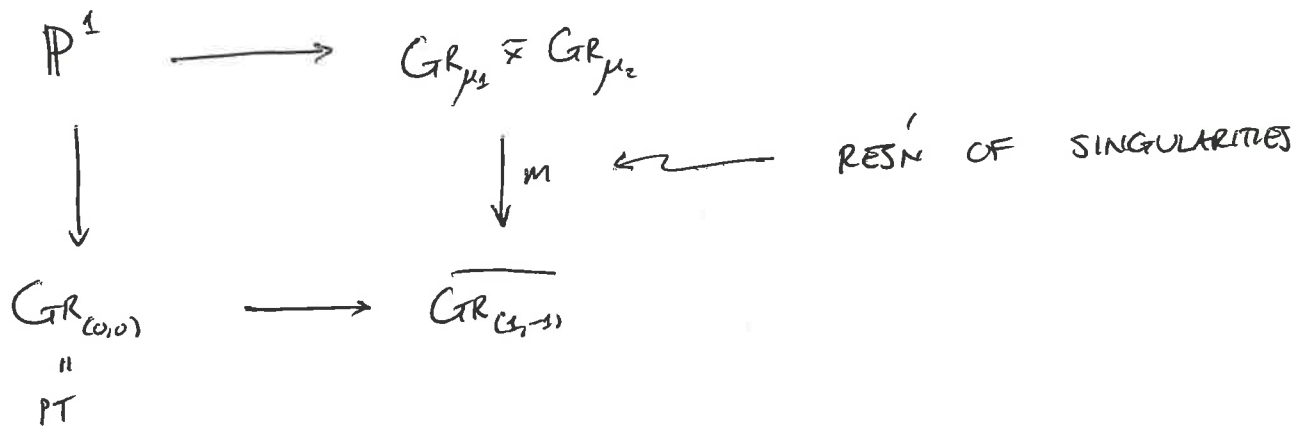 ℙ¹ ⟶ Gr_{μ₁} ×̃ Gr_{μ₂}
m RES'N OF SINGULARITIES
Gr_{(0,0)} ⟶ \overline{Gr_{(1,-1)}}
=
PT